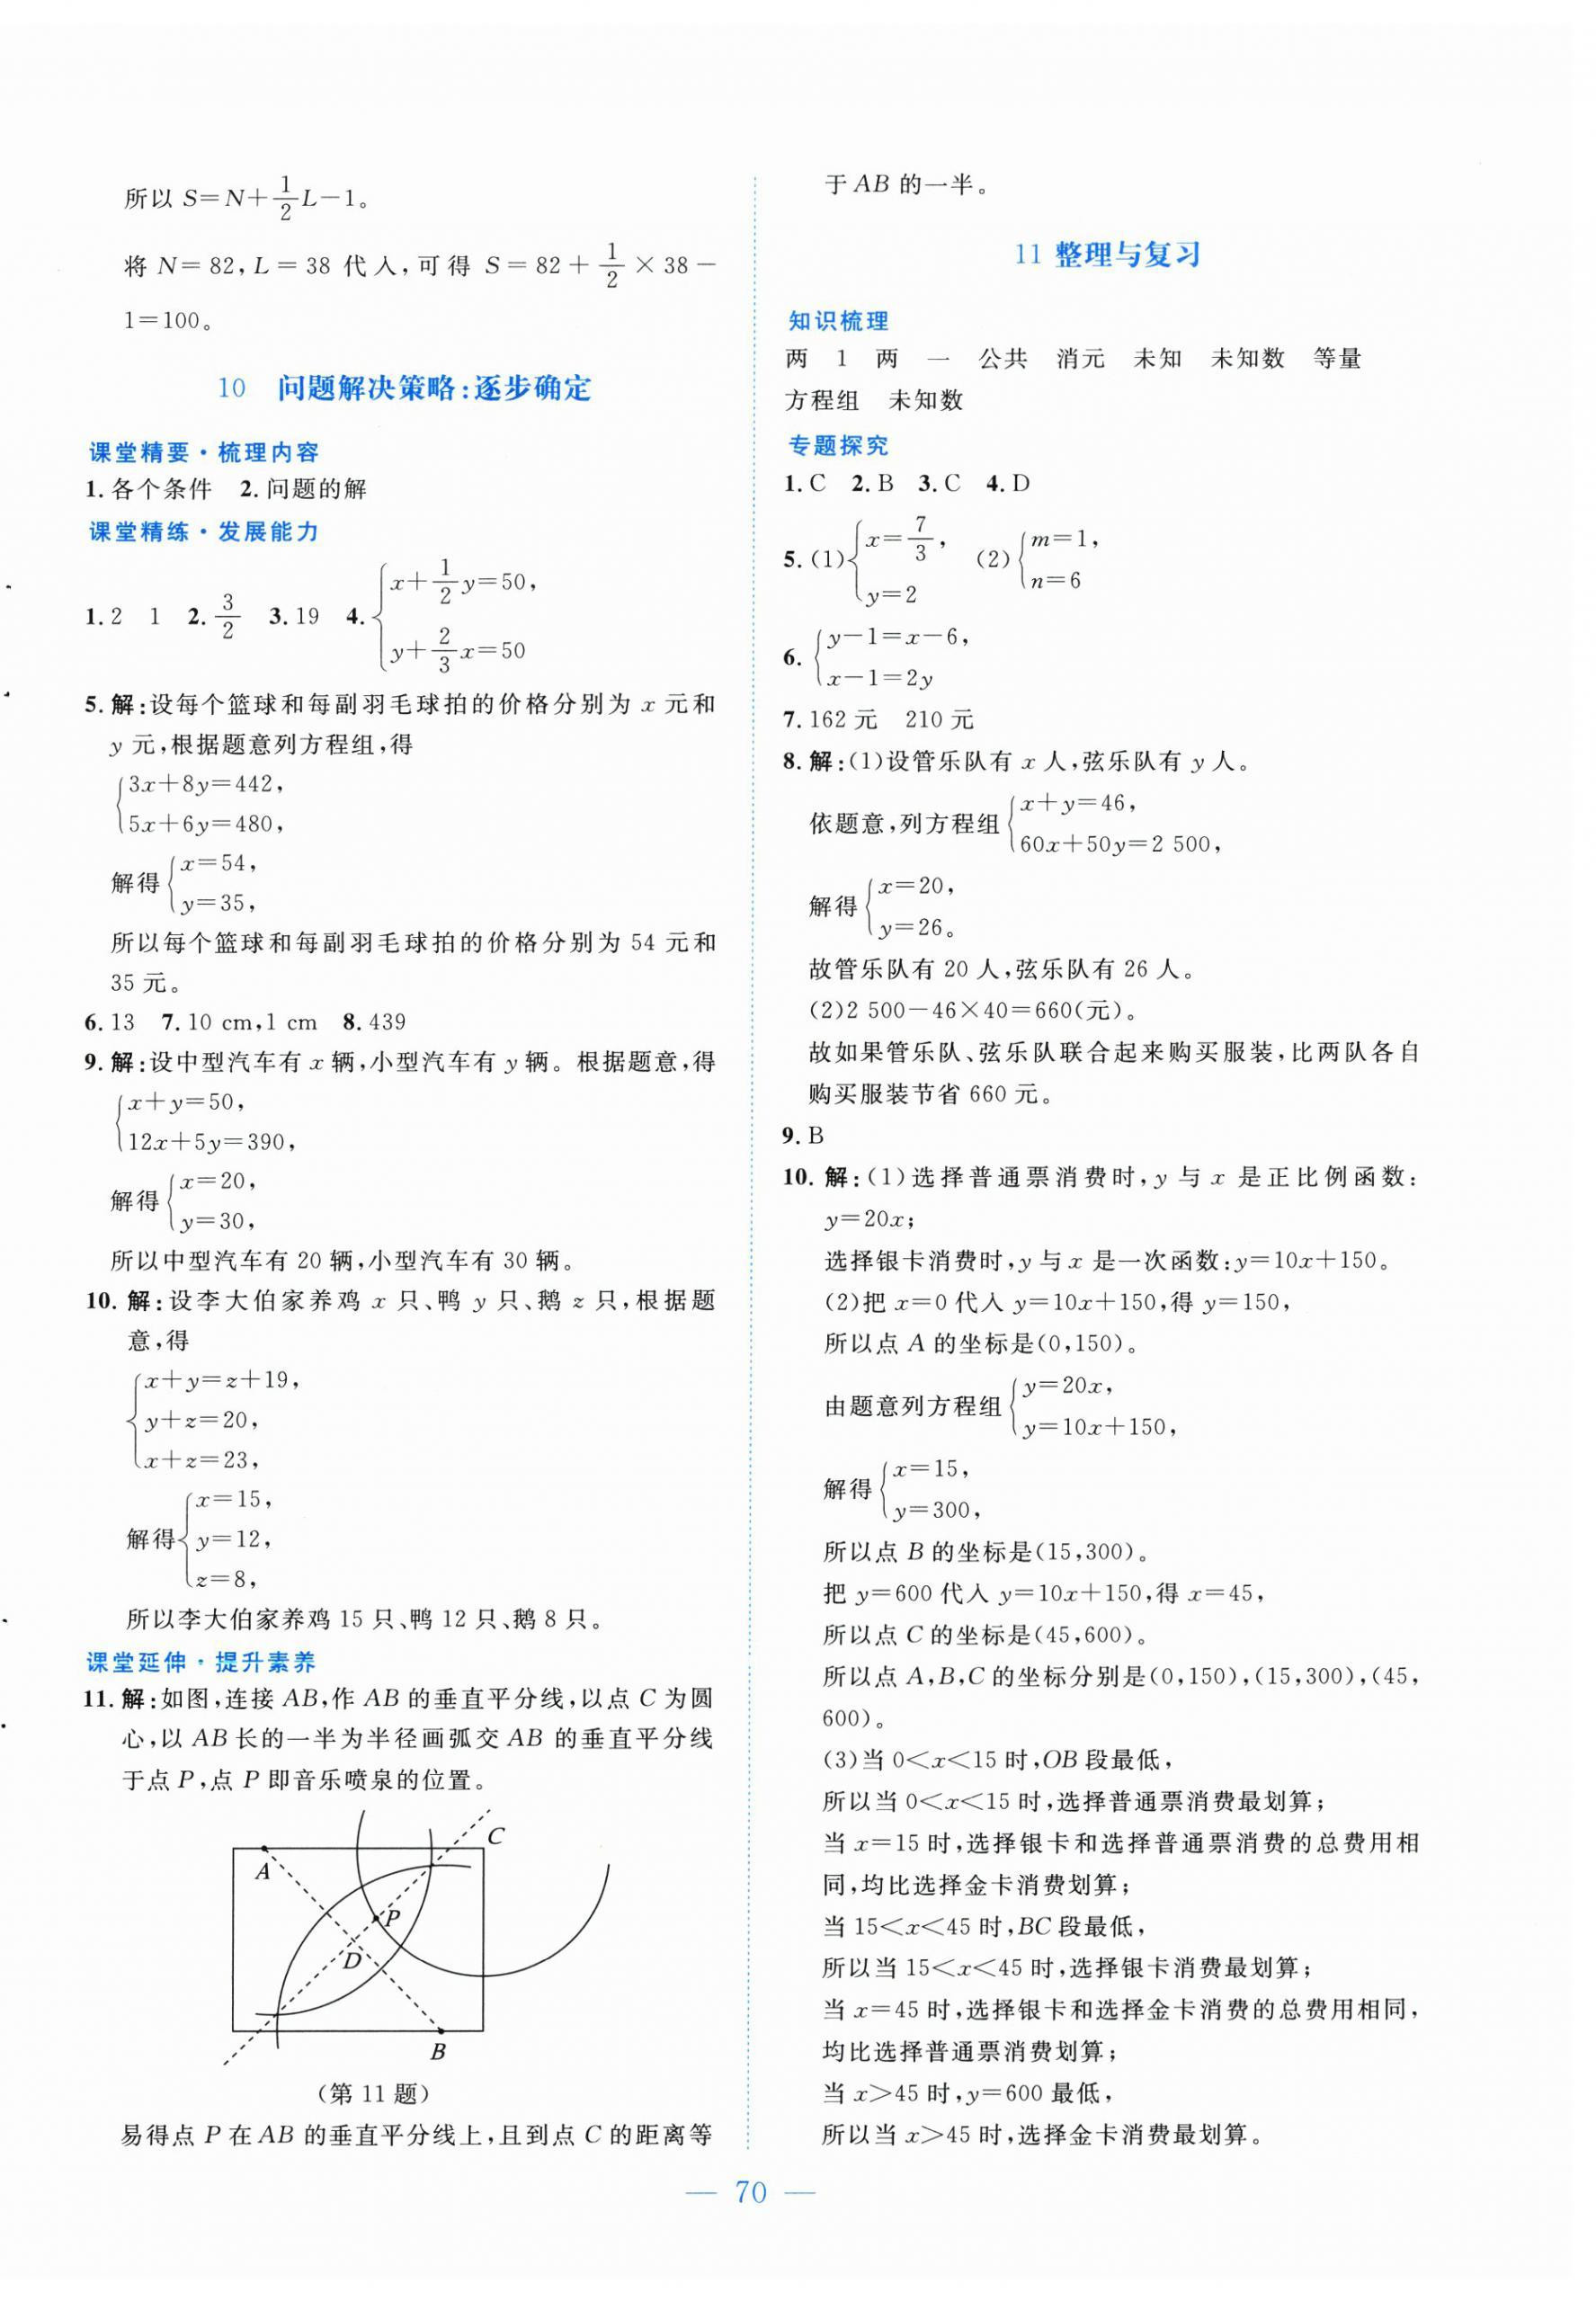 所以 S=N+1/2L-1。
将 N=82,L=38 代入,可得 S=82+1/2×38-
1=100。
10 问题解决策略:逐步确定
课堂精要·梳理内容
1.各个条件 2.问题的解
课堂精练·发展能力
1.2 1 2.3/2 3.19 4.{x+1/2y=50,
y+2/3x=50
5.解:设每个篮球和每副羽毛球拍的价格分别为 x 元和
y 元,根据题意列方程组,得
{3x+8y=442,
5x+6y=480,
解得{x=54,
y=35,
所以每个篮球和每副羽毛球拍的价格分别为 54 元和
35 元。
6.13 7.10 cm,1 cm 8.439
9.解:设中型汽车有 x 辆,小型汽车有 y 辆。根据题意,得
{x+y=50,
12x+5y=390,
解得{x=20,
y=30,
所以中型汽车有 20 辆,小型汽车有 30 辆。
10.解:设李大伯家养鸡 x 只、鸭 y 只、鹅 z 只,根据题
意,得
{x+y=z+19,
y+z=20,
x+z=23,
解得{x=15,
y=12,
z=8,
所以李大伯家养鸡 15 只、鸭 12 只、鹅 8 只。
课堂延伸·提升素养
11.解:如图,连接 AB,作 AB 的垂直平分线,以点 C 为圆
心,以 AB 长的一半为半径画弧交 AB 的垂直平分线
于点 P,点 P 即音乐喷泉的位置。
C
A
P
D
B
(第 11 题)
易得点 P 在 AB 的垂直平分线上,且到点 C 的距离等
于 AB 的一半。
11 整理与复习
知识梳理
两 1 两 一 公共 消元 未知 未知数 等量
方程组 未知数
专题探究
1.C 2.B 3.C 4.D
5.(1){x=7/3, (2){m=1,
y=2 n=6
6.{y-1=x-6,
x-1=2y
7.162 元 210 元
8.解:(1)设管乐队有 x 人,弦乐队有 y 人。
依题意,列方程组{x+y=46,
60x+50y=2 500,
解得{x=20,
y=26。
故管乐队有 20 人,弦乐队有 26 人。
(2)2 500-46×40=660(元)。
故如果管乐队、弦乐队联合起来购买服装,比两队各自
购买服装节省 660 元。
9.B
10.解:(1)选择普通票消费时,y 与 x 是正比例函数:
y=20x;
选择银卡消费时,y 与 x 是一次函数:y=10x+150。
(2)把 x=0 代入 y=10x+150,得 y=150,
所以点 A 的坐标是(0,150)。
由题意列方程组{y=20x,
y=10x+150,
解得{x=15,
y=300,
所以点 B 的坐标是(15,300)。
把 y=600 代入 y=10x+150,得 x=45,
所以点 C 的坐标是(45,600)。
所以点 A,B,C 的坐标分别是(0,150),(15,300),(45,
600)。
(3)当 0<x<15 时,OB 段最低,
所以当 0<x<15 时,选择普通票消费最划算;
当 x=15 时,选择银卡和选择普通票消费的总费用相
同,均比选择金卡消费划算;
当 15<x<45 时,BC 段最低,
所以当 15<x<45 时,选择银卡消费最划算;
当 x=45 时,选择银卡和选择金卡消费的总费用相同,
均比选择普通票消费划算;
当 x>45 时,y=600 最低,
所以当 x>45 时,选择金卡消费最划算。
— 70 —